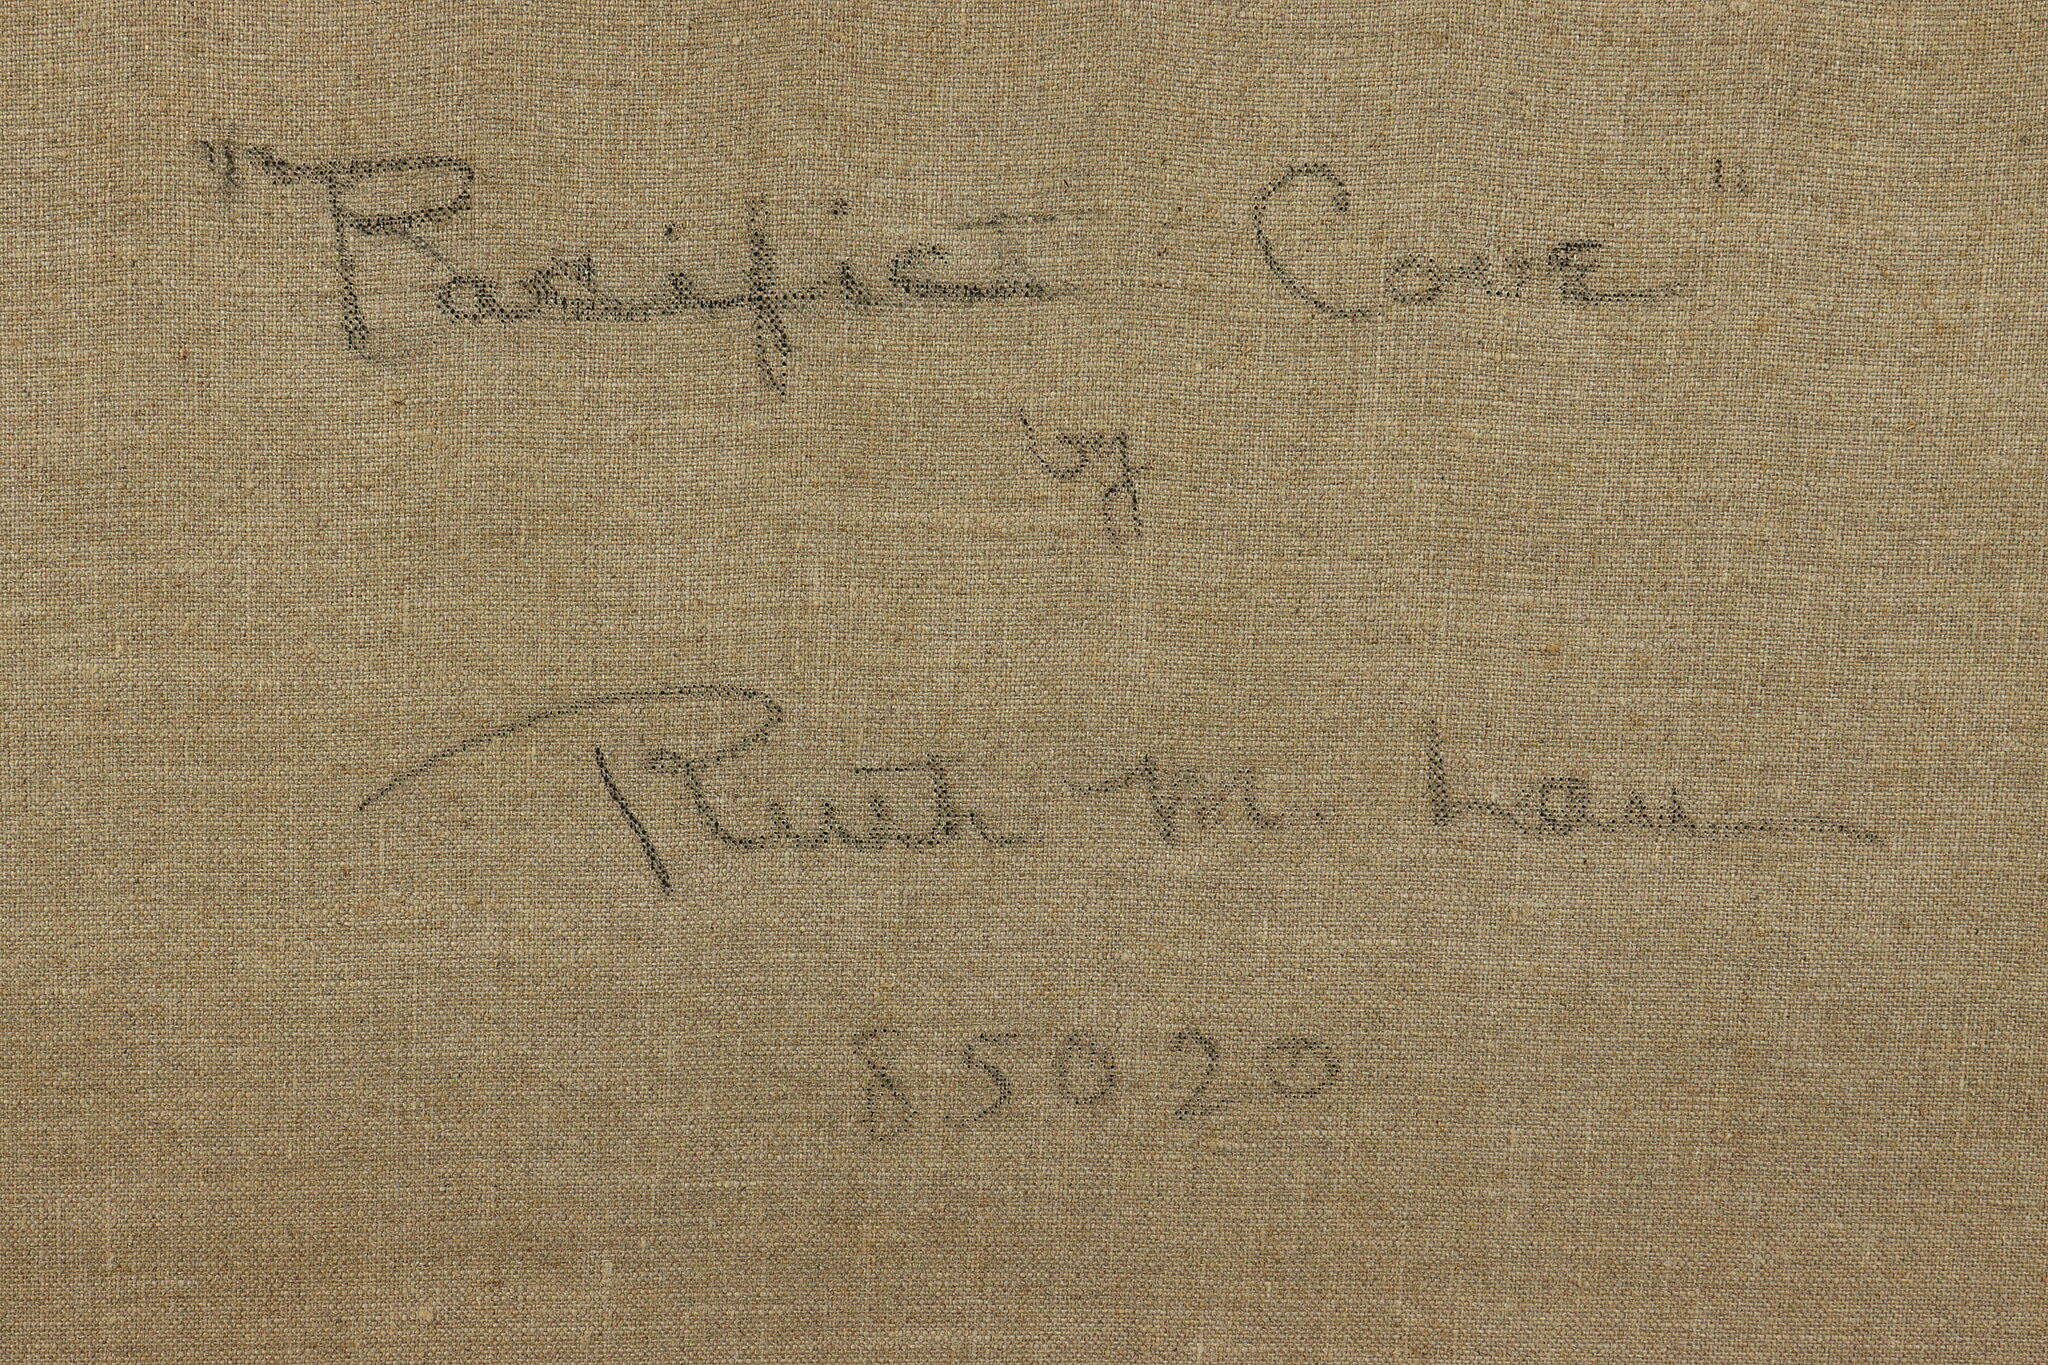 "Pacific Cove"
by
Ruth M. Lau
85020